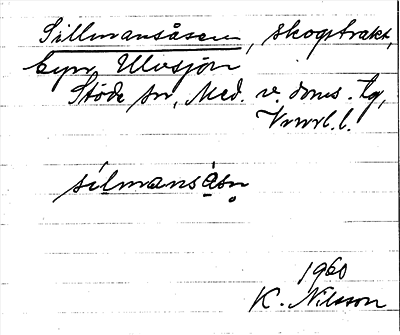 Sillmansåsen, skogstrakt,
byn Ulvsjön
Stöde sn, Med. v. doms. tg,
l.
sílmansåsn
1960
K. Nilsson